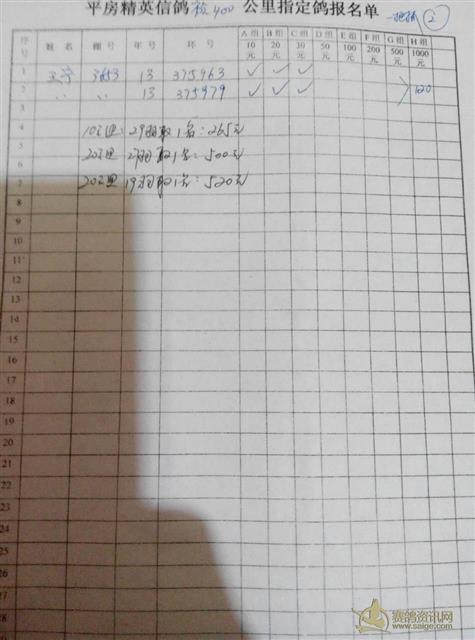 平房精英信鸽 秋400 公里指定鸽报名单 ②
序号 姓名 棚号 年号 环号 A组10元 B组20元 C组30元 D组50元 E组100元 F组200元 G组500元 H组1000元
1 王宁 3653 13 375963 ✓ ✓ ✓
2 〃 〃 13 375979 ✓ ✓ ✓ 120
3
4 10元里: 29羽取1名: 265元
5 20元里 27羽取1名: 500元
6
7 20元里 19羽取1名: 520元
8
9
10
11
12
13
14
15
16
17
18
19
20
21
22
23
24
25
26
27
28
赛鸽资讯网
www.saige.com